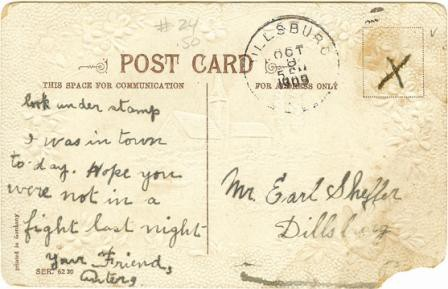 # 24
.50
POST CARD
THIS SPACE FOR COMMUNICATION
FOR ADDRESS ONLY
DILLSBURG
OCT
8
5 PM
1909
X
look under stamp
I was in town
to day. Hope you
were not in a
fight last night
Your Friend,
Mr. Earl Sheffer
Dillsburg
printed in Germany
SER. 62 30